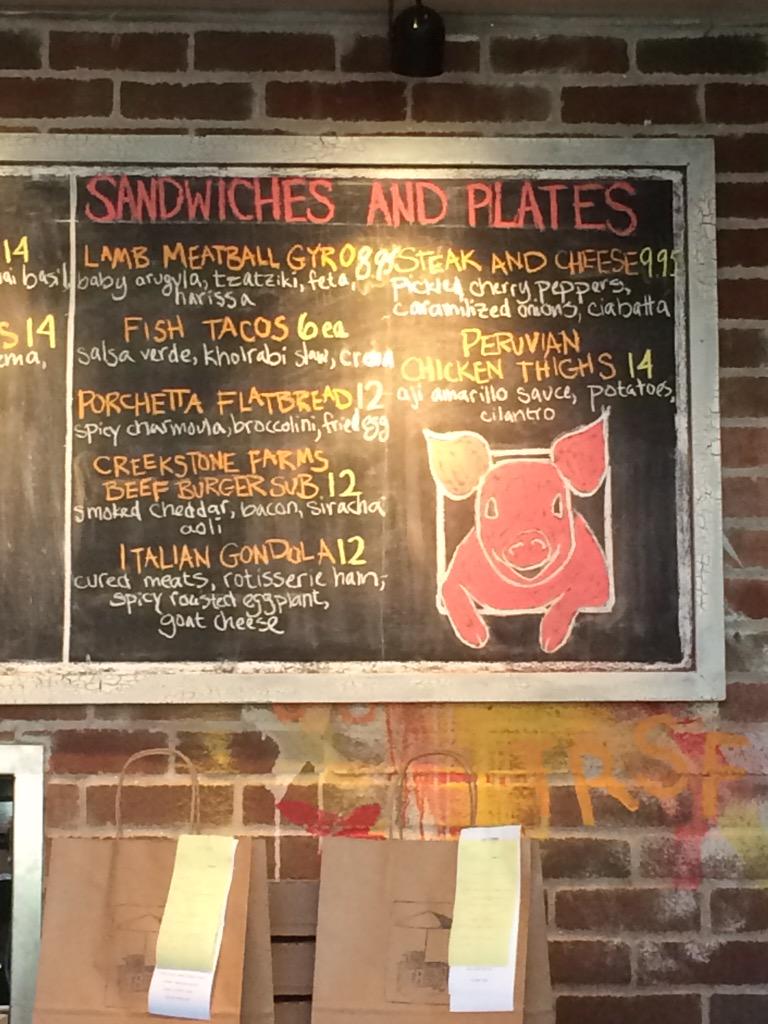 SANDWICHES AND PLATES
14
basil
S 14
ema,
LAMB MEATBALL GYRO 8.95
baby arugula, tzatziki, feta,
harissa
FISH TACOS 6ea
salsa verde, kholrabi slaw, crema
PORCHETTA FLATBREAD 12
spicy charmoula, broccolini, fried egg
CREEKSTONE FARMS
BEEF BURGER SUB 12
smoked cheddar, bacon, siracha
aoli
ITALIAN GONDOLA 12
cured meats, rotisserie ham,
spicy roasted eggplant,
goat cheese
STEAK AND CHEESE 9.95
Pickled cherry peppers,
caramilized onions, ciabatta
PERUVIAN
CHICKEN THIGHS 14
aji amarillo sauce, potatoes,
cilantro
TRSF